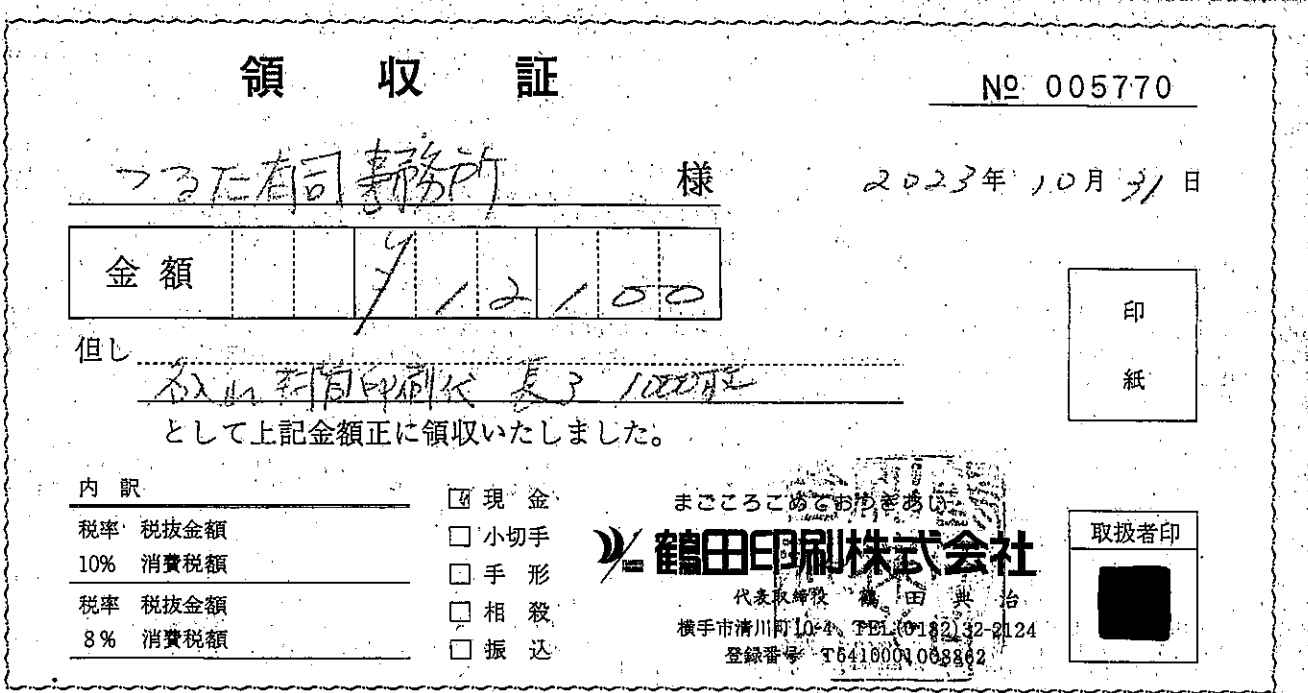 領 収 証
№ 005770
つるた有司事務所 様
2023年 10月 31日
金額 ¥112100
但し
名入れ封筒印刷代 長3 1000枚
として上記金額正に領収いたしました。
印紙
内訳
税率 税抜金額
10% 消費税額
税率 税抜金額
8% 消費税額
☑ 現金
□ 小切手
□ 手形
□ 相殺
□ 振込
まごころこめておつきあい
鶴田印刷株式会社
代表取締役 鶴田典治
横手市清川町10-4 TEL(0182)32-2124
登録番号 T6410001008862
取扱者印